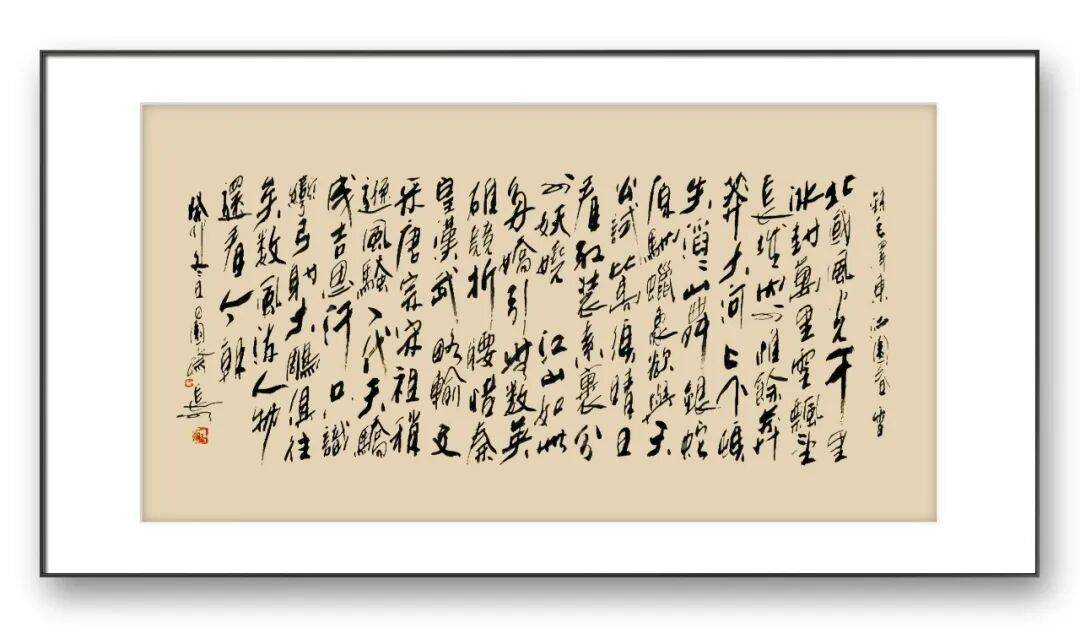 毛澤東沁園春雪
北國風光千里
冰封萬里雪飄望
長城内外惟餘莽
莽大河上下頓
失滔滔山舞銀蛇
原馳蠟象欲與天
公試比高須晴日
看红裝素裹分
外妖嬈江山如此
多嬌引無数英
雄競折腰惜秦
皇漢武略輸文
采唐宗宋祖稍
遜風騷一代天驕
成吉思汗只識
彎弓射大雕俱往
矣数風流人物
還看今朝
癸卯冬